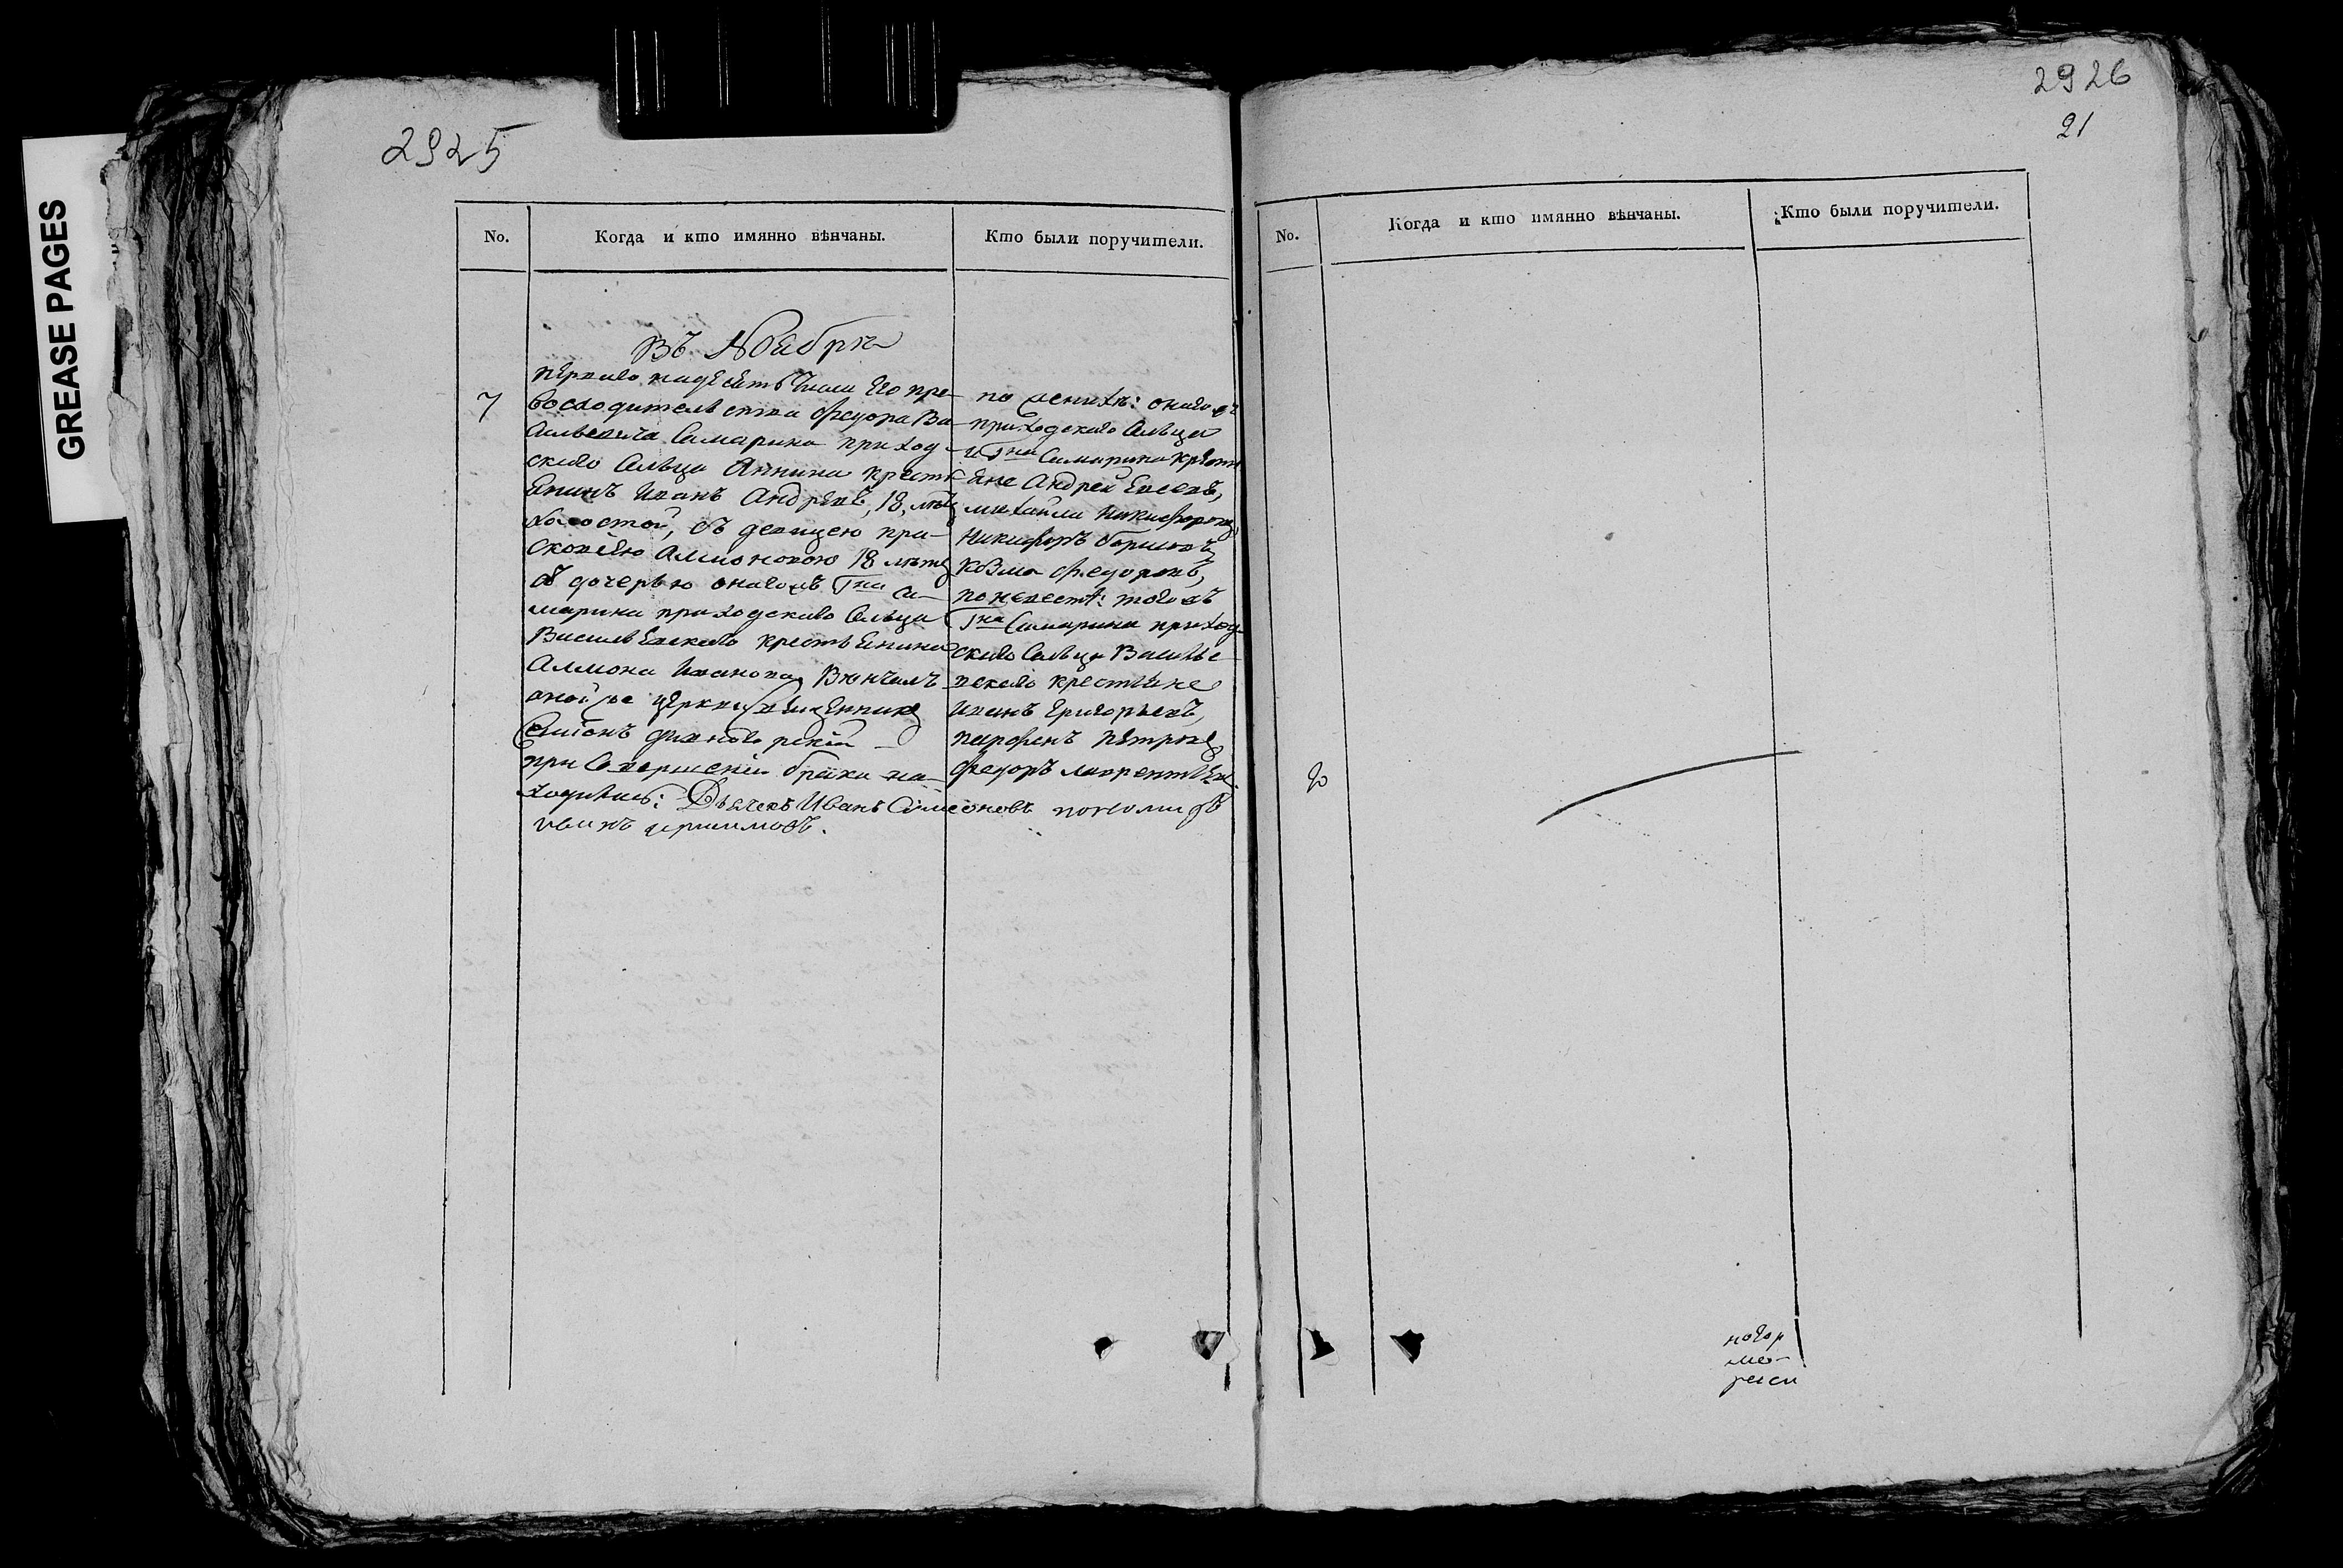 GREASE PAGES
2925
No.
Когда и кто имянно вѣнчаны.
Кто были поручители.
Въ Ноябрѣ
7
первагонадесять числа Его пре-
восходительства Федора Ва-
сильевича Самарина приход-
скаго сельца Аннина кресть
янинъ Иванъ Андреевъ, 18, лѣтъ
холостой, съ девицею пра-
сковіею 18 летъ
съ дочерью онагожъ Гна Са-
марина приходскаго сельца
Васильевскаго крестьянина
Иванова, Венчалъ
оной же церкви Священникъ
Симіонъ
при Совершеніи брака на-
ходились: Дьячекъ Иванъ Симеоновъ пономарь
по женихе: онагожъ
приходскаго сельца
и Гна Самарина кресть
яне Андрей Евсеевъ,
михайла Никифоровъ,
Никифоръ борисовъ,
Козма Федоровъ,
по невесте: тогожъ
Гна Самарина приход-
скаго сельца Василье-
вскаго крестьяне
Иванъ Григорьевъ,
парфенъ петровъ
Федоръ лаврентьевъ
2926
21
No.
Когда и кто имянно вѣнчаны.
Кто были поручители.